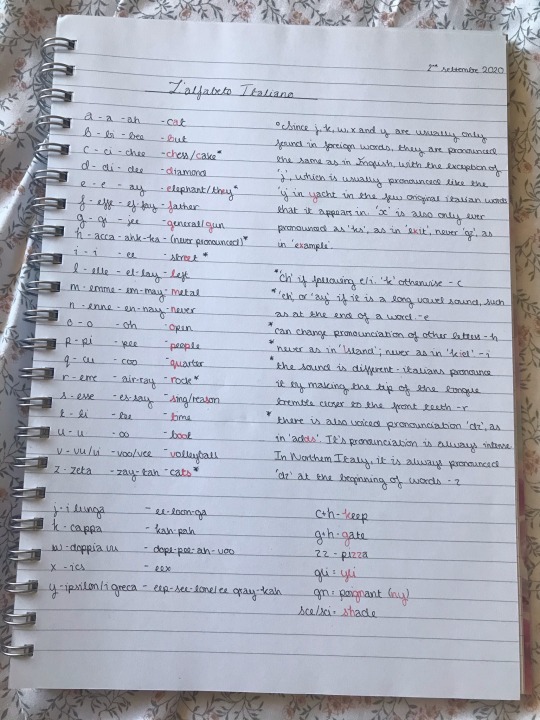 2nd settembre 2020
L'alfabeto Italiano
a - a - ah - cat
b - bi - bee - but
c - ci - chee - chess/cake*
d - di - dee - diamond
e - e - ay - elephant/they*
f - effe - ef-fay - father
g - gi - jee - general/gun
h - acca - ahk-ka - (never pronounced)*
i - i - ee - street *
l - elle - el-lay - left
m - emme - em-may - metal
n - enne - en-nay - never
o - o - oh - open
p - pi - pee - people
q - cu - coo - quarter
r - erre - air-ray - rock*
s - esse - es-say - sing/reason
t - ti - tee - time
u - u - oo - boot
v - vu/vi - voo/vee - volleyball
z - zeta - zay-tah - cats*
j - i lunga - ee-loon-ga
k - cappa - kah-pah
w - doppia vu - dopi-pee-ah-voo
x - ics - eex
y - ipsilon/i greca - eep-see-lone/ee gray-kah
° Since j, k, w, x and y are usually only
found in foreign words, they are pronounced
the same as in English, with the exception of
'j', which is usually pronounced like the
'y' in yacht in the few original italian words
that it appears in. 'x' is also only ever
pronounced as 'ks', as in 'exit', never 'gz', as
in 'example'.
*'ch' if following e/i. 'k' otherwise - c
*'eh' or 'ay' if it is a long vowel sound, such
as at the end of a word - e
* can change pronunciation of other letters - h
* never as in 'island', never as in 'kiel' - i
* the sound is different - italians pronounce
it by making the tip of the tongue
tremble closer to the front teeth - r
* there is also voiced pronunciation 'dz', as
in 'adds'. It's pronunciation is always intense
In Northern Italy, it is always pronounced
'dz' at the beginning of words - z
c+h - keep
g+h - gate
zz - pizza
gli = yli
gn = poignant (ny)
sce/sci = shade